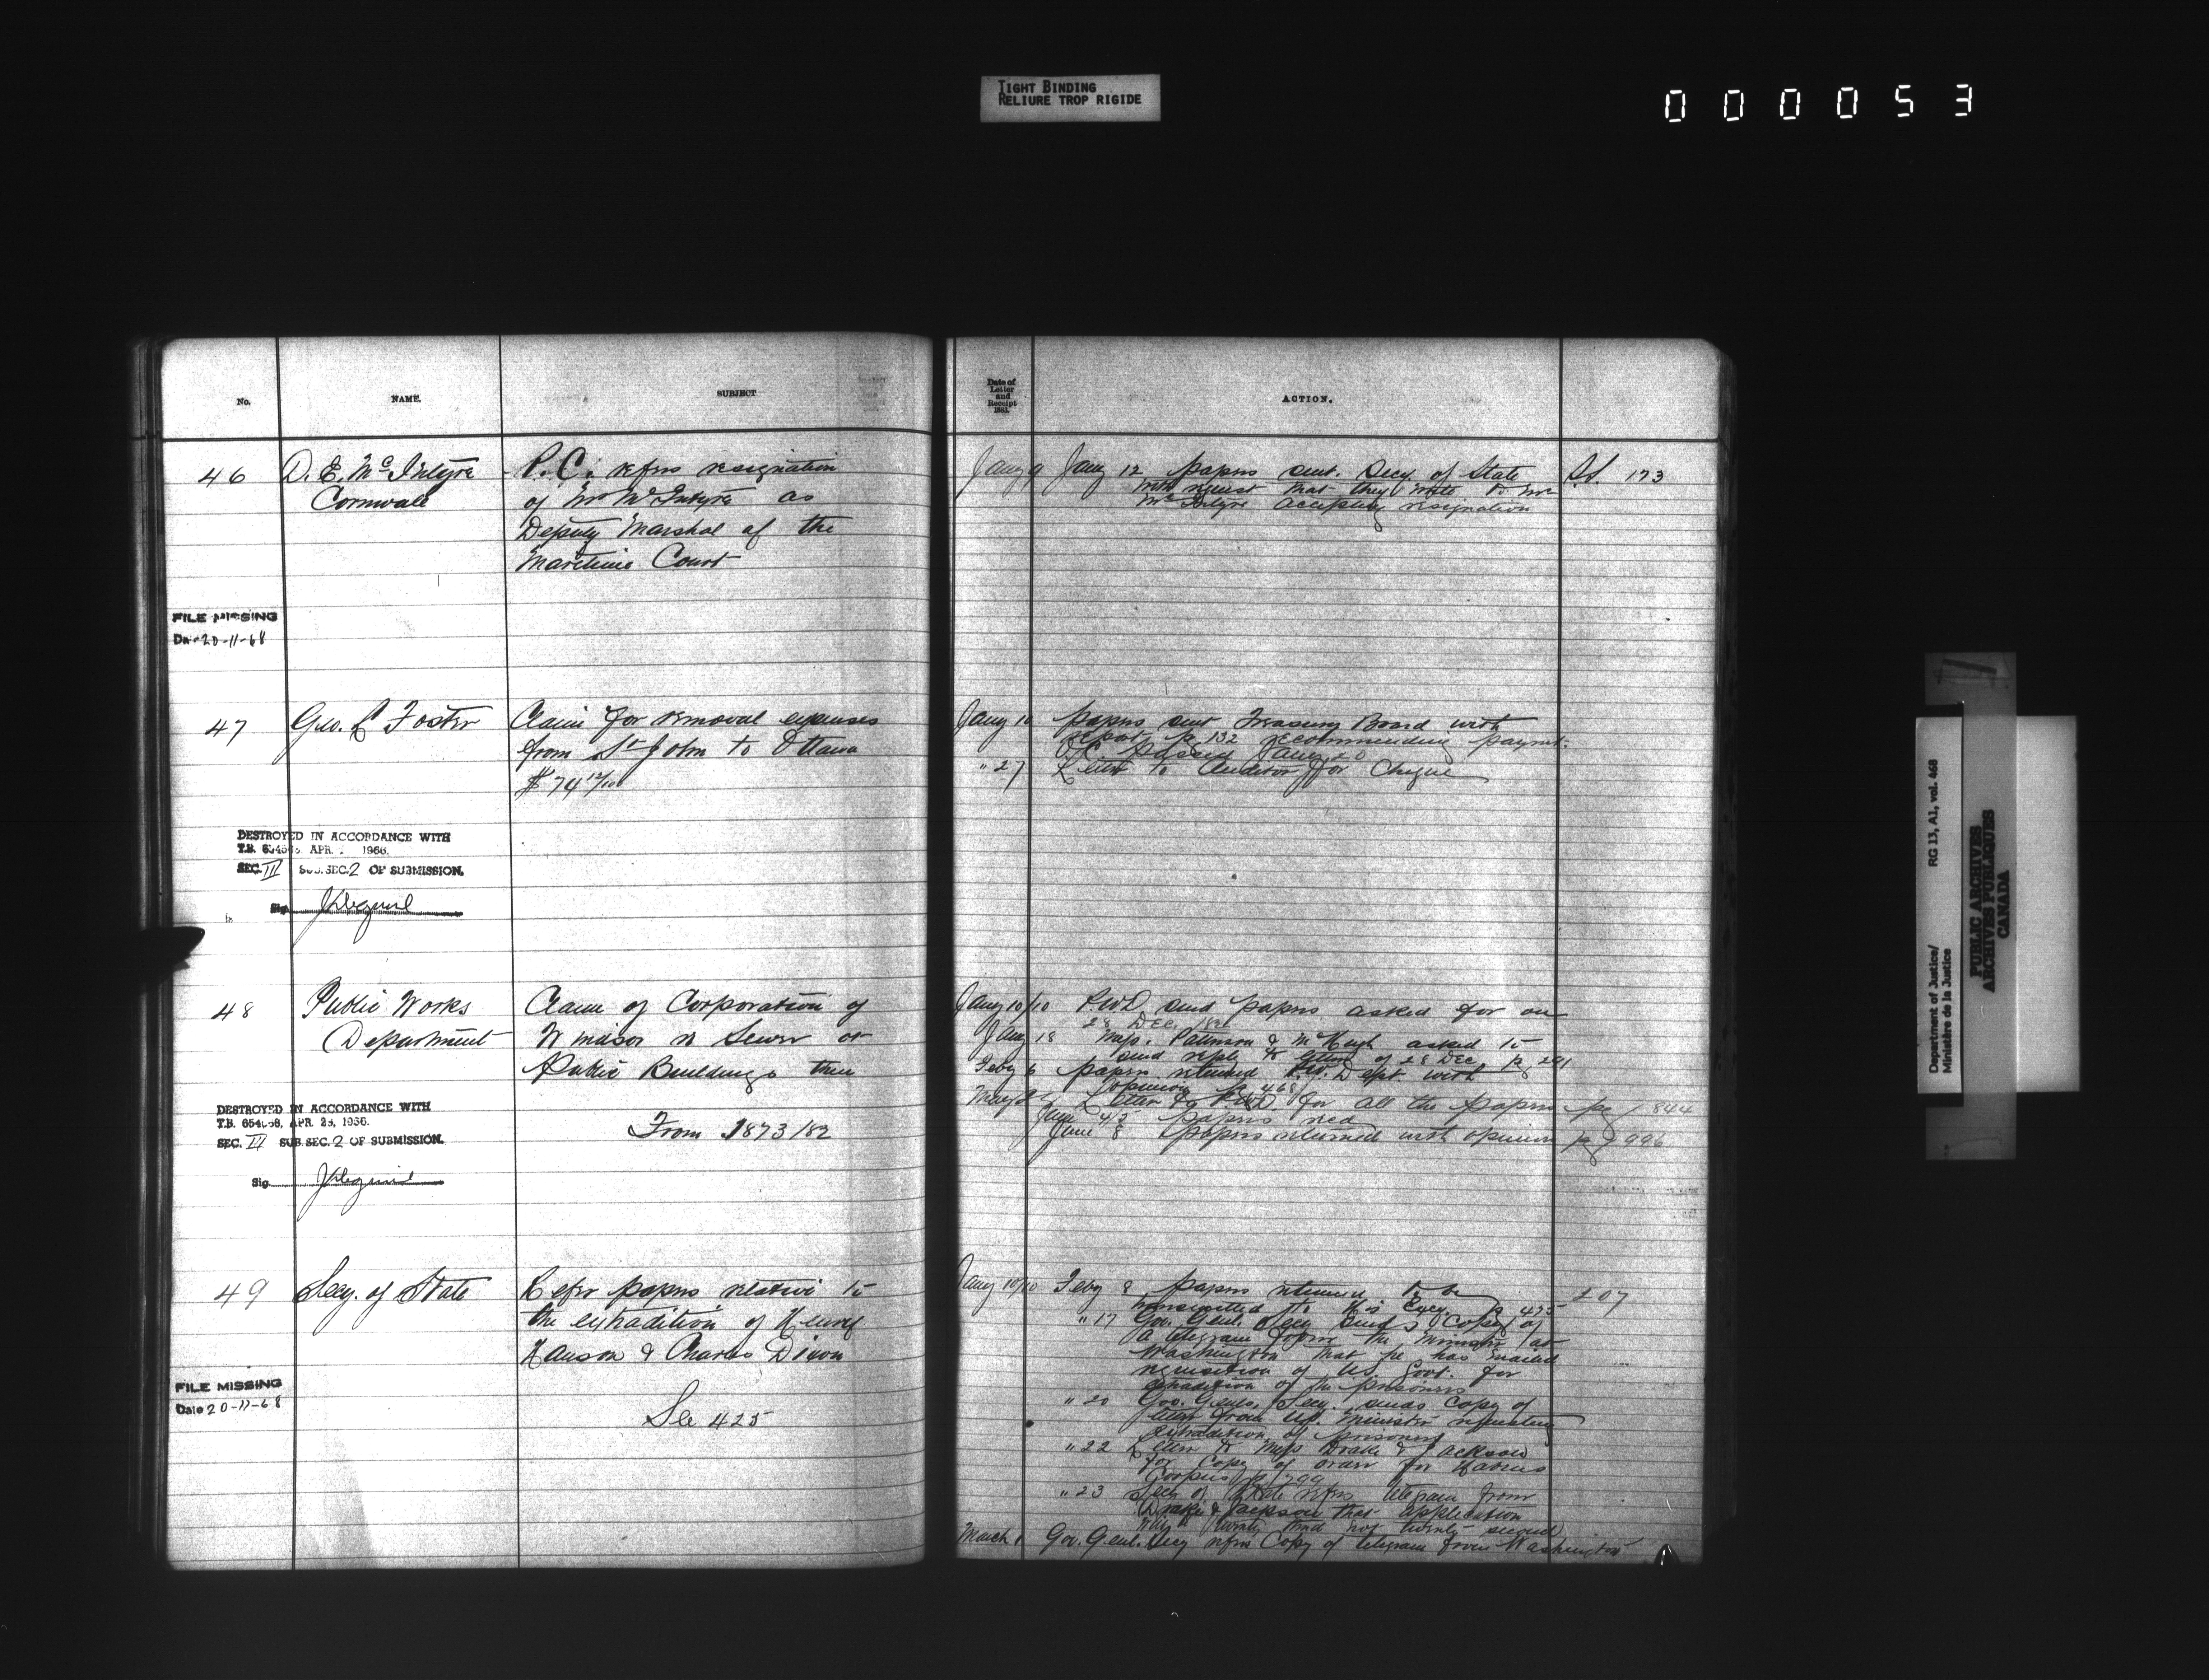 TIGHT BINDING
RELIURE TROP RIGIDE
000053
No.
NAME.
SUBJECT
Date of
Letter
and
Receipt
1883.
ACTION.
46
D. E. McIntyre
Cornwall
P. C. refers resignation
of Mr McIntyre as
Deputy Marshal of the
Maritime Court
Jany 9
Jany 12 papers sent Secy. of State
with request that they write to Mr
McIntyre accepting resignation
173
FILE MISSING
Date 20-11-68
47
Geo. L Foster
Claim for removal expenses
from St John to Ottawa
$74 12/100
Jany 10
papers sent Treasury Board with
report p 132 recommending paymt.
O.C. passed Jany 20
" 27 Letter to Auditor for Cheque
DESTROYED IN ACCORDANCE WITH
T.B. APR. 1966.
SEC. III SUB.SEC. 2 OF SUBMISSION.
Sig.
48
Public Works
Department
Claim of Corporation of
Windsor re Sewer or
Public Buildings there
From 1873/82
Jany 10/10 P.W.D send papers asked for on
28 Dec /82
Jany 18 Messs. Patterson & McHugh asked to
send reply to letter of 28 Dec p 281
Feby 6 papers returned P.W. Dept. with
opinion p 468
Letter to P.W.D. for all the papers pg 844
June 4/5 papers recd
June 8 papers returned with opinion pg 996
DESTROYED IN ACCORDANCE WITH
T.B. APR. 1966.
SEC. III SUB.SEC. 2 OF SUBMISSION.
Sig.
49
Secy. of State
Refer papers relative to
the extradition of Henry
Hanson & Charles Dixon
See 425
Jany 10/10 Feby 8 papers returned to be
transmitted to His Excy. p 475
207
" 17 Gov. Genl. Secy sends Copy of
a telegram from the Minister at
Washington that he has mailed
requisition of US. Govt. for
extradition of the prisoners
" 20 Gov. Genls. Secy. sends copy of
letter from US. Minister requesting
extradition of prisoners
" 22 Letter to Messs Drake & Jackson
for copy of order for Habeas
Corpus p 799
" 23 Secy of State refers telegram from
Drake & Jackson that application
twenty third not twenty second
March 1 Gov. Genl. Secy refers Copy of telegram from Washington
FILE MISSING
Date 20-11-68
Department of Justice/
Ministère de la Justice
RG 13, A1, vol. 468
PUBLIC ARCHIVES
ARCHIVES PUBLIQUES
CANADA